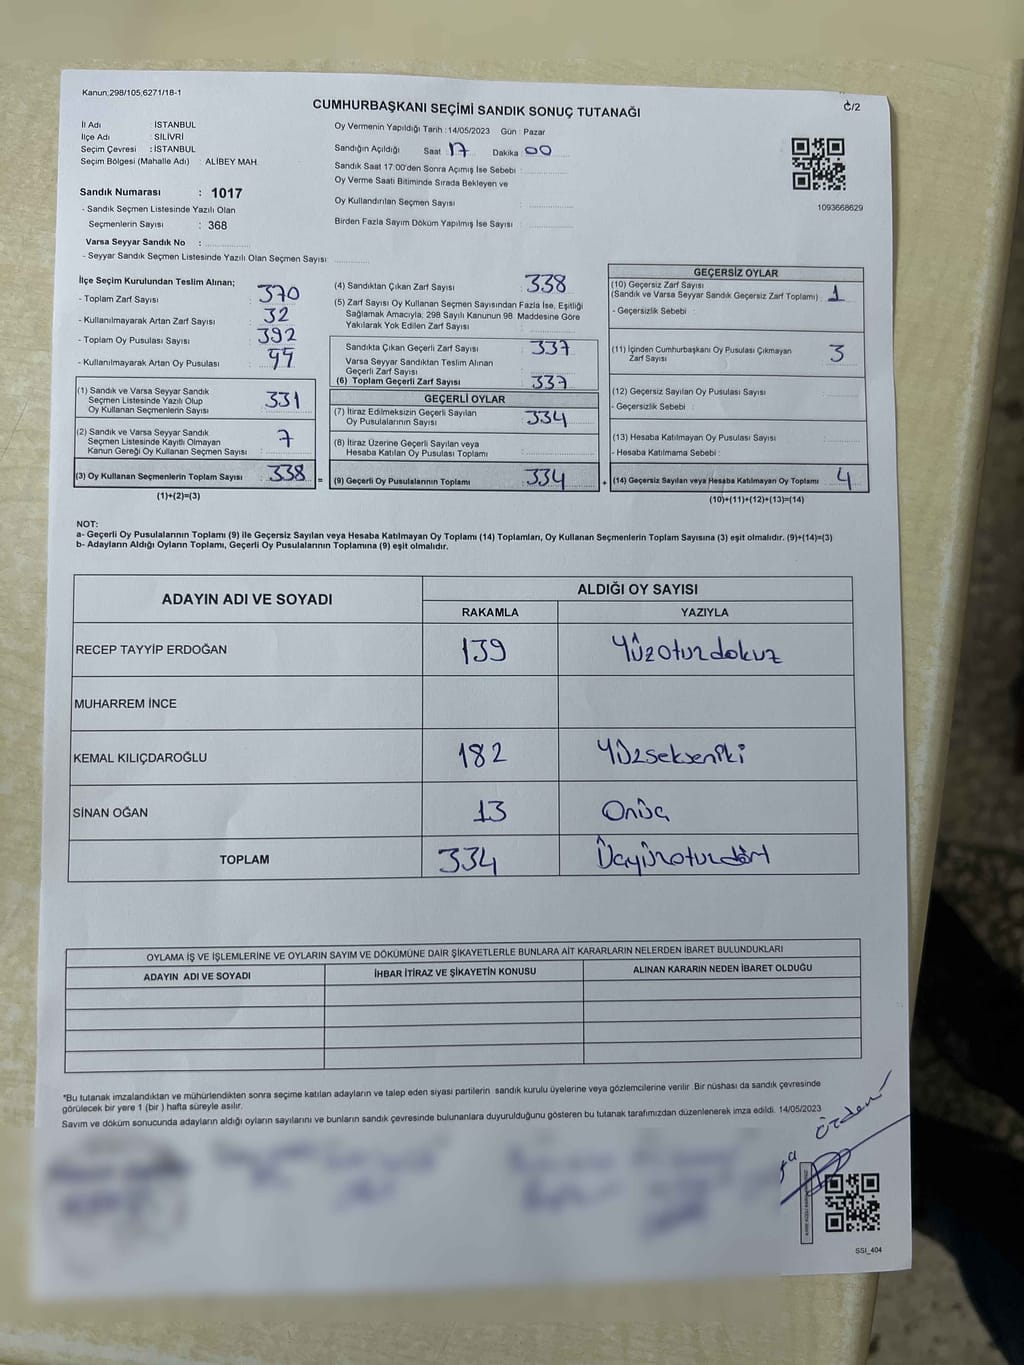 Kanun,298/105,6271/18-1
CUMHURBAŞKANI SEÇİMİ SANDIK SONUÇ TUTANAĞI
C/2
İl Adı : İSTANBUL
İlçe Adı : SİLİVRİ
Seçim Çevresi : İSTANBUL
Seçim Bölgesi (Mahalle Adı) : ALİBEY MAH.
Sandık Numarası : 1017
- Sandık Seçmen Listesinde Yazılı Olan
Seçmenlerin Sayısı : 368
Varsa Seyyar Sandık No :
- Seyyar Sandık Seçmen Listesinde Yazılı Olan Seçmen Sayısı:
Oy Vermenin Yapıldığı Tarih : 14/05/2023 Gün : Pazar
Sandığın Açıldığı Saat 17 Dakika 00
Sandık Saat 17.00'den Sonra Açımış İse Sebebi :
Oy Verme Saati Bitiminde Sırada Bekleyen ve
Oy Kullandırılan Seçmen Sayısı :
Birden Fazla Sayım Döküm Yapılmış İse Sayısı :
1093668629
İlçe Seçim Kurulundan Teslim Alınan;
- Toplam Zarf Sayısı : 370
- Kullanılmayarak Artan Zarf Sayısı : 32
- Toplam Oy Pusulası Sayısı : 392
- Kullanılmayarak Artan Oy Pusulası :
(1) Sandık ve Varsa Seyyar Sandık
Seçmen Listesinde Yazılı Olup
Oy Kullanan Seçmenlerin Sayısı : 331
(2) Sandık ve Varsa Seyyar Sandık
Seçmen Listesinde Kayıtlı Olmayan
Kanun Gereği Oy Kullanan Seçmen Sayısı : 7
(3) Oy Kullanan Seçmenlerin Toplam Sayısı : 338
(1)+(2)=(3)
=
(4) Sandıktan Çıkan Zarf Sayısı : 338
(5) Zarf Sayısı Oy Kullanan Seçmen Sayısından Fazla İse, Eşitliği
Sağlamak Amacıyla, 298 Sayılı Kanunun 98. Maddesine Göre
Yakılarak Yok Edilen Zarf Sayısı :
Sandıkta Çıkan Geçerli Zarf Sayısı : 337
Varsa Seyyar Sandıktan Teslim Alınan
Geçerli Zarf Sayısı :
(6) Toplam Geçerli Zarf Sayısı : 337
GEÇERLİ OYLAR
(7) İtiraz Edilmeksizin Geçerli Sayılan
Oy Pusulalarının Sayısı : 334
(8) İtiraz Üzerine Geçerli Sayılan veya
Hesaba Katılan Oy Pusulası Toplamı :
(9) Geçerli Oy Pusulalarının Toplamı : 334
+
GEÇERSİZ OYLAR
(10) Geçersiz Zarf Sayısı
(Sandık ve Varsa Seyyar Sandık Geçersiz Zarf Toplamı) : 1
- Geçersizlik Sebebi :
(11) İçinden Cumhurbaşkanı Oy Pusulası Çıkmayan
Zarf Sayısı : 3
(12) Geçersiz Sayılan Oy Pusulası Sayısı :
- Geçersizlik Sebebi :
(13) Hesaba Katılmayan Oy Pusulası Sayısı :
- Hesaba Katılmama Sebebi :
(14) Geçersiz Sayılan veya Hesaba Katılmayan Oy Toplamı : 4
(10)+(11)+(12)+(13)=(14)
NOT:
a- Geçerli Oy Pusulalarının Toplamı (9) ile Geçersiz Sayılan veya Hesaba Katılmayan Oy Toplamı (14) Toplamları, Oy Kullanan Seçmenlerin Toplam Sayısına (3) eşit olmalıdır. (9)+(14)=(3)
b- Adayların Aldığı Oyların Toplamı, Geçerli Oy Pusulalarının Toplamına (9) eşit olmalıdır.
ADAYIN ADI VE SOYADI
ALDIĞI OY SAYISI
RAKAMLA YAZIYLA
RECEP TAYYİP ERDOĞAN 139 Yüzoturdokuz
MUHARREM İNCE
KEMAL KILIÇDAROĞLU 182 Yüzsekseniki
SİNAN OĞAN 13 Onüç
TOPLAM 334 Üçyüzoturdört
OYLAMA İŞ VE İŞLEMLERİNE VE OYLARIN SAYIM VE DÖKÜMÜNE DAİR ŞİKAYETLERLE BUNLARA AİT KARARLARIN NELERDEN İBARET BULUNDUKLARI
ADAYIN ADI VE SOYADI İHBAR İTİRAZ VE ŞİKAYETİN KONUSU ALINAN KARARIN NEDEN İBARET OLDUĞU
*Bu tutanak imzalandıktan ve mühürlendikten sonra seçime katılan adayların ve talep eden siyasi partilerin sandık kurulu üyelerine veya gözlemcilerine verilir .Bir nüshası da sandık çevresinde
görülecek bir yere 1 (bir ) hafta süreyle asılır.
Sayım ve döküm sonucunda adayların aldığı oyların sayılarını ve bunların sandık çevresinde bulunanlara duyurulduğunu gösteren bu tutanak tarafımızdan düzenlenerek imza edildi. 14/05/2023
SSI_404